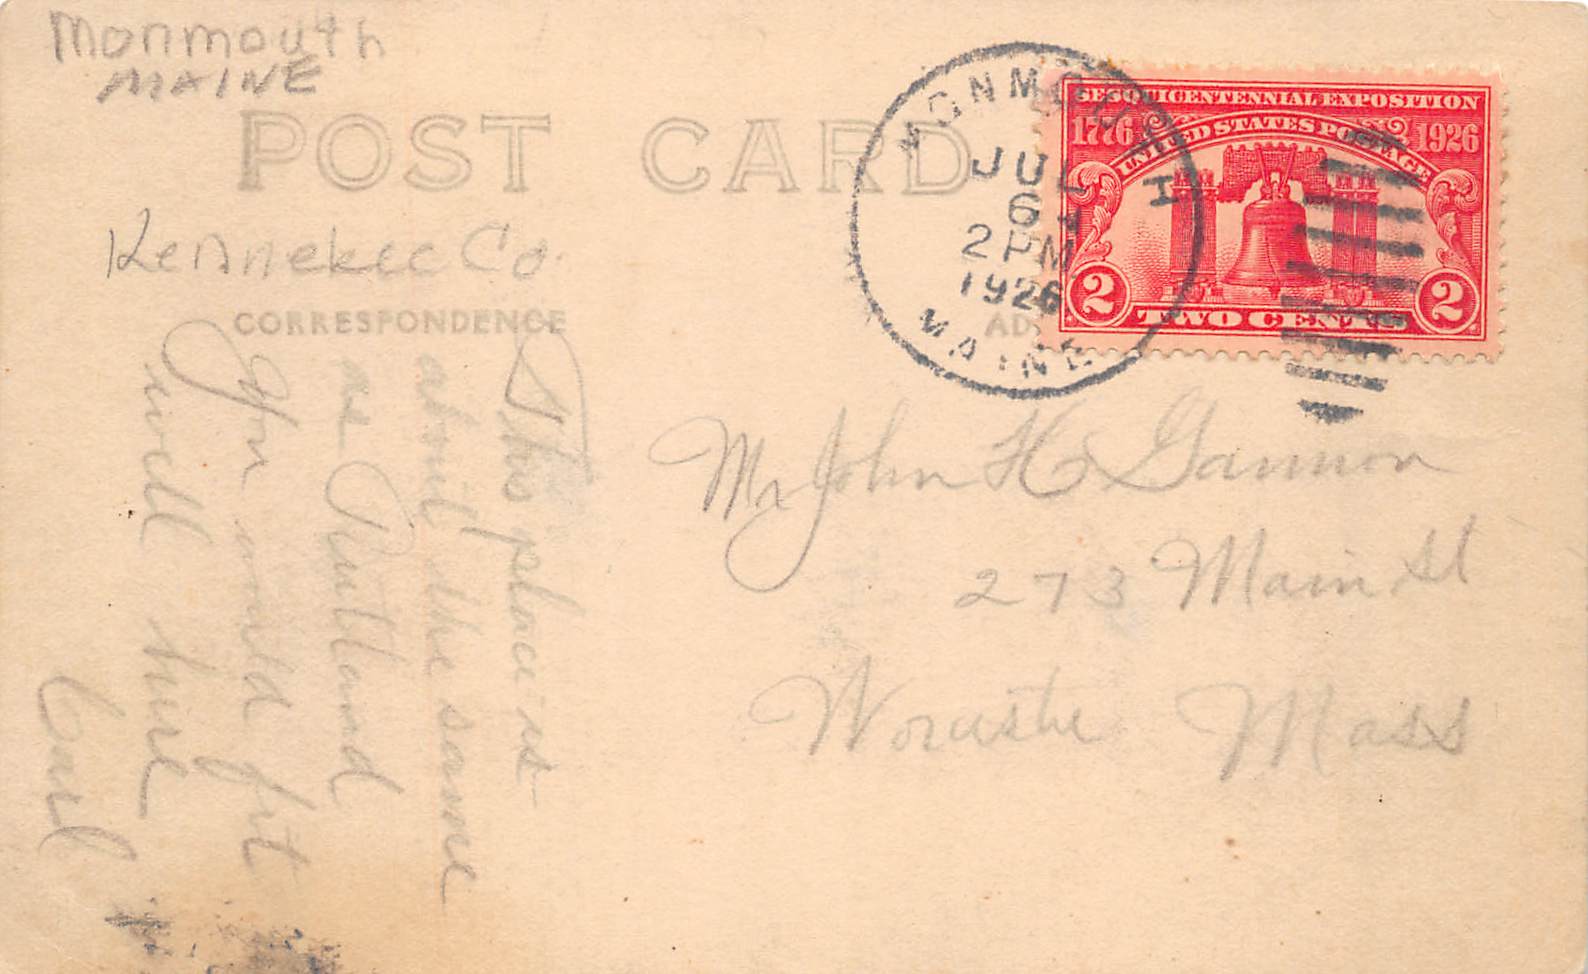 Monmouth
MAINE
POST CARD
Kennebec Co.
CORRESPONDENCE
MONMOUTH
JUL
6
2 PM
1926
MAINE
SESQUICENTENNIAL EXPOSITION
1776 1926
UNITED STATES POSTAGE
2 2
TWO CENTS
AD
This place is
about the same
as Rutland
You would fit
well here
Carl
Mr John H Gannon
273 Main St
Worcester Mass